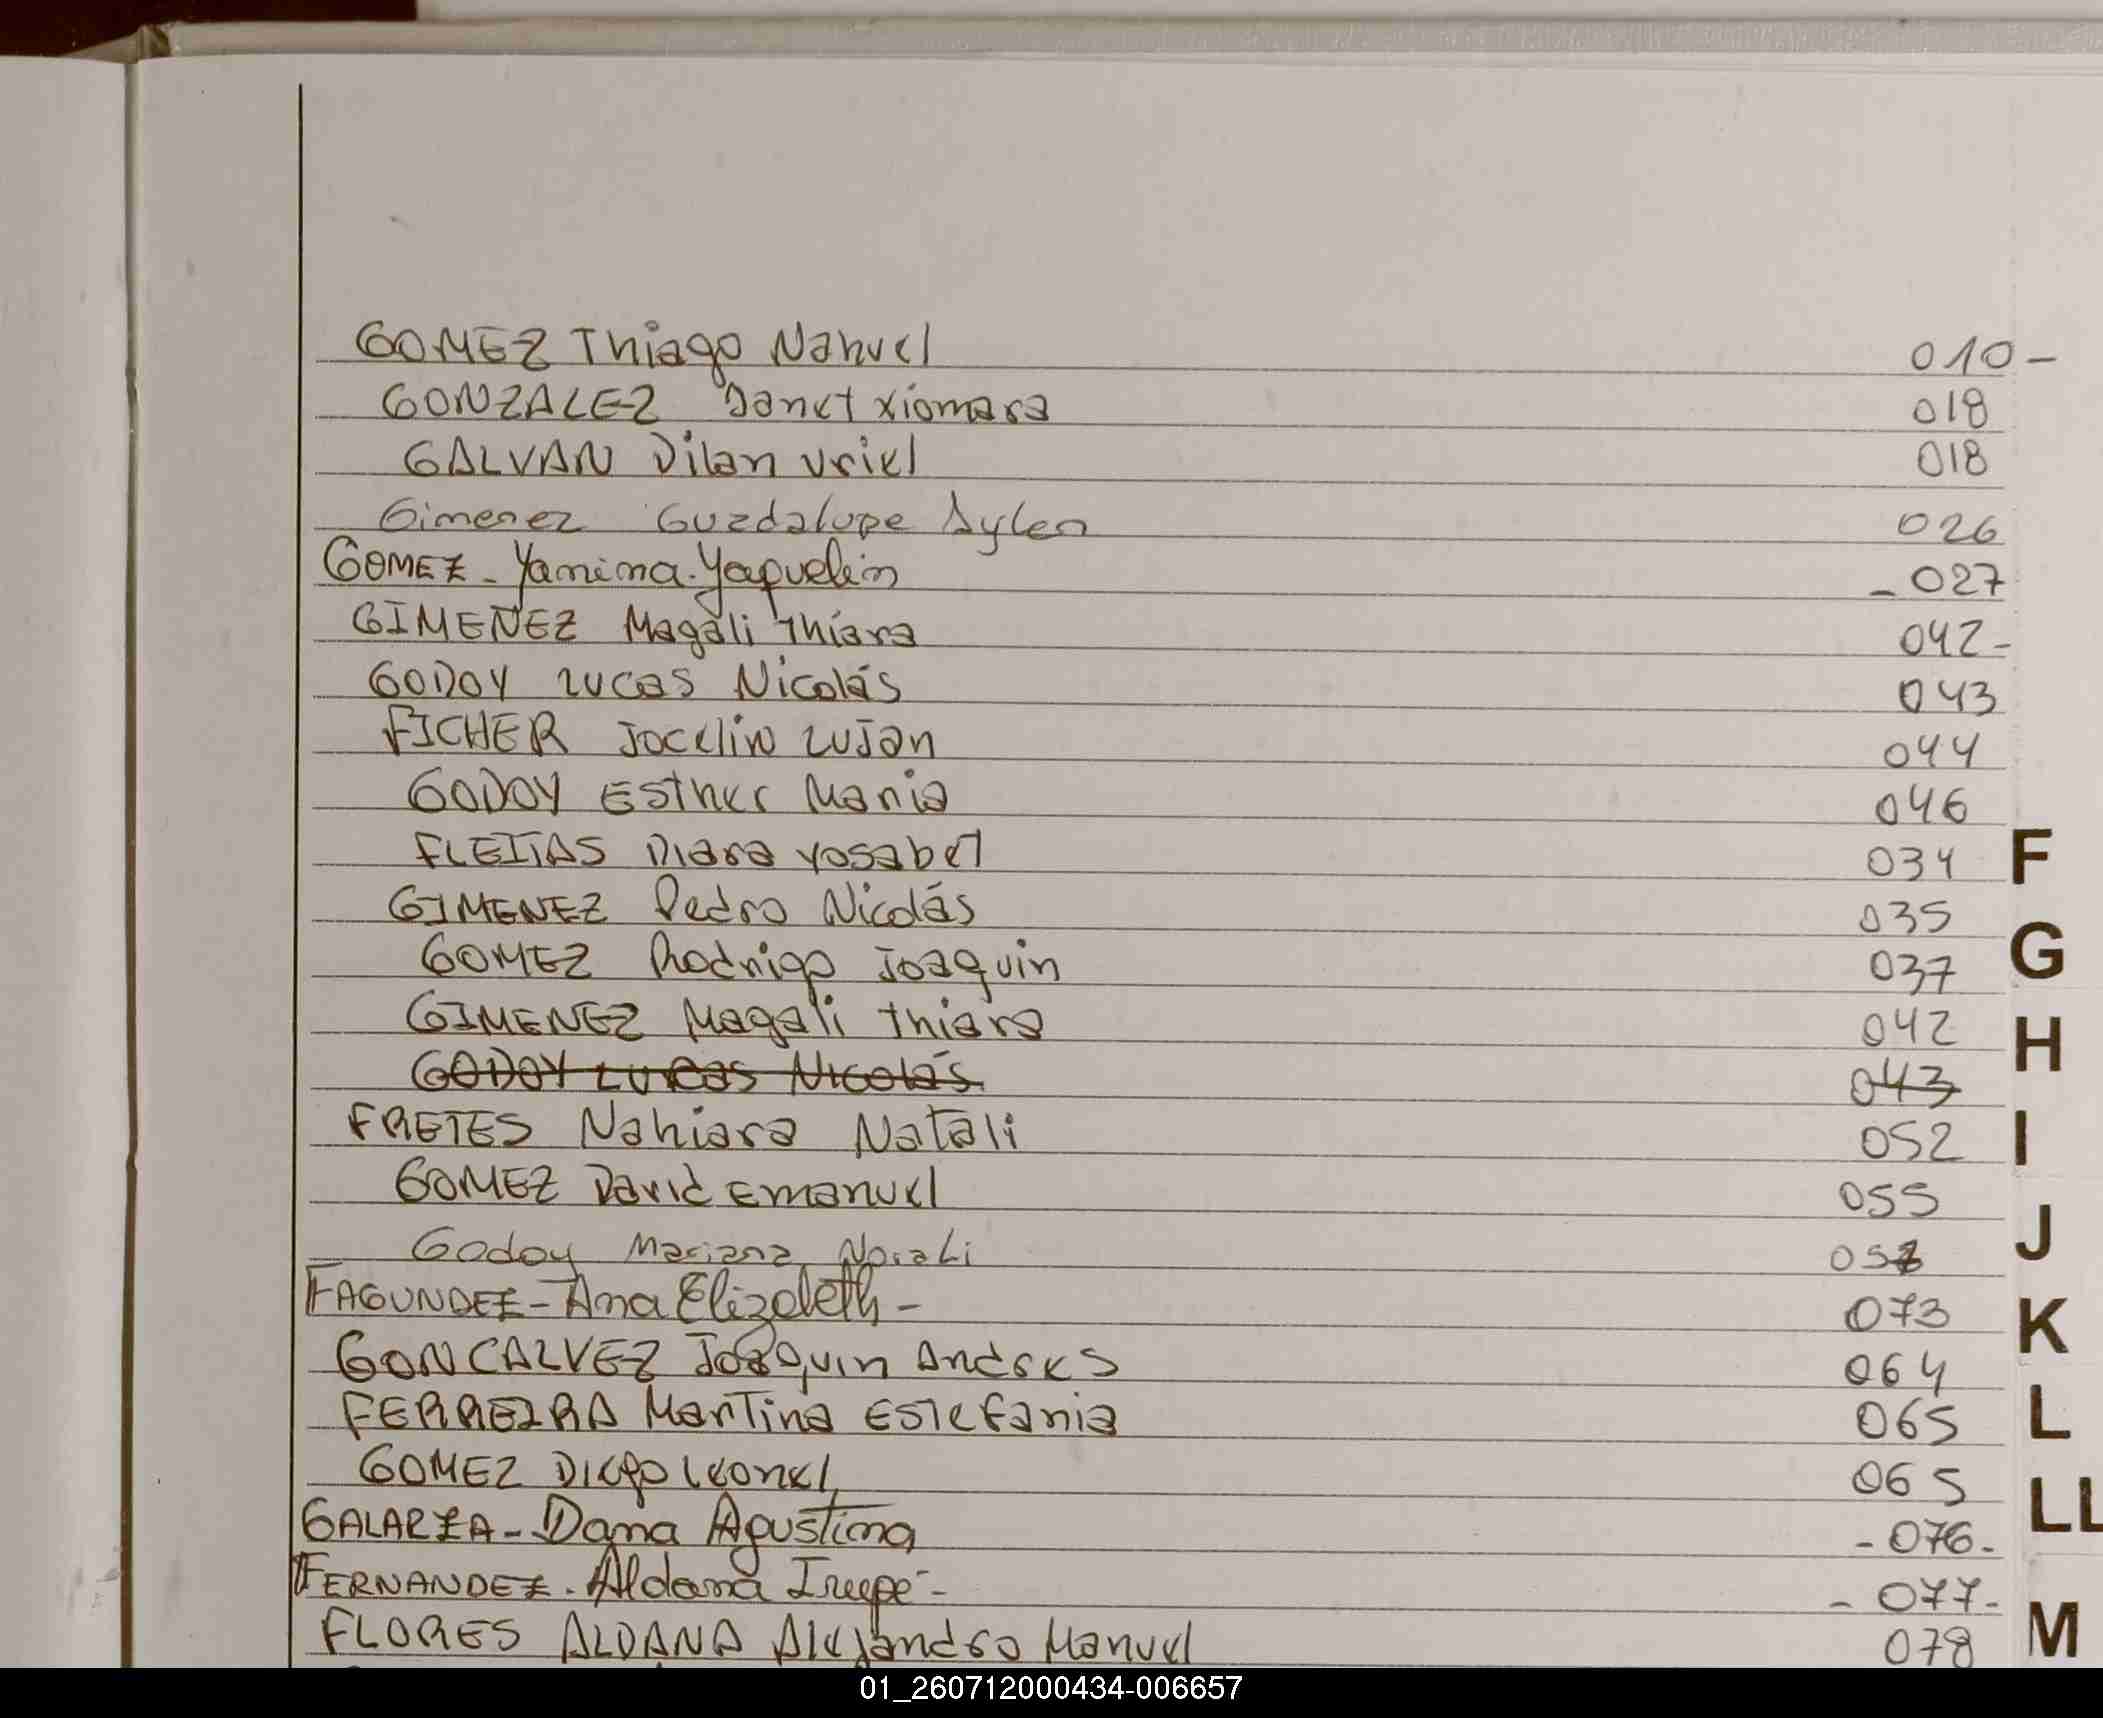 GOMEZ Thiago Nahuel 010-
GONZALEZ Janet xiomara 018
GALVAN Dilan uriel 018
Gimenez Guadalupe Aylen 026
GOMEZ - Yamima. Yaquelin - 027
GIMENEZ Magali thiara 042-
GODOY Lucas Nicolás 043
FICHER Jocelin Lujan 044
GODOY Esther Maria 046
FLEITAS Diara yosabet 034 F
GIMENEZ Pedro Nicolás 035
GOMEZ Rodrigo Joaquin 037 G
GIMENEZ Magali thiara 042 H
GODOY Lucas Nicolás 043
FRETES Nahiara Natali 052 I
GOMEZ David Emanuel 055
Godoy Mariana Norali J
FAGUNDEZ - Ana Elizabeth - 073 K
GONCALVEZ Joaquin Andres 064
FERREIRA Martina Estefania 065 L
GOMEZ Diego Leonel 065
GALARZA - Dana Agustina - 076 - LL
FERNANDEZ. Aldana Irupe - - 077 -
FLORES ALDANA Alejandro Manuel 078 M
01_260712000434-006657